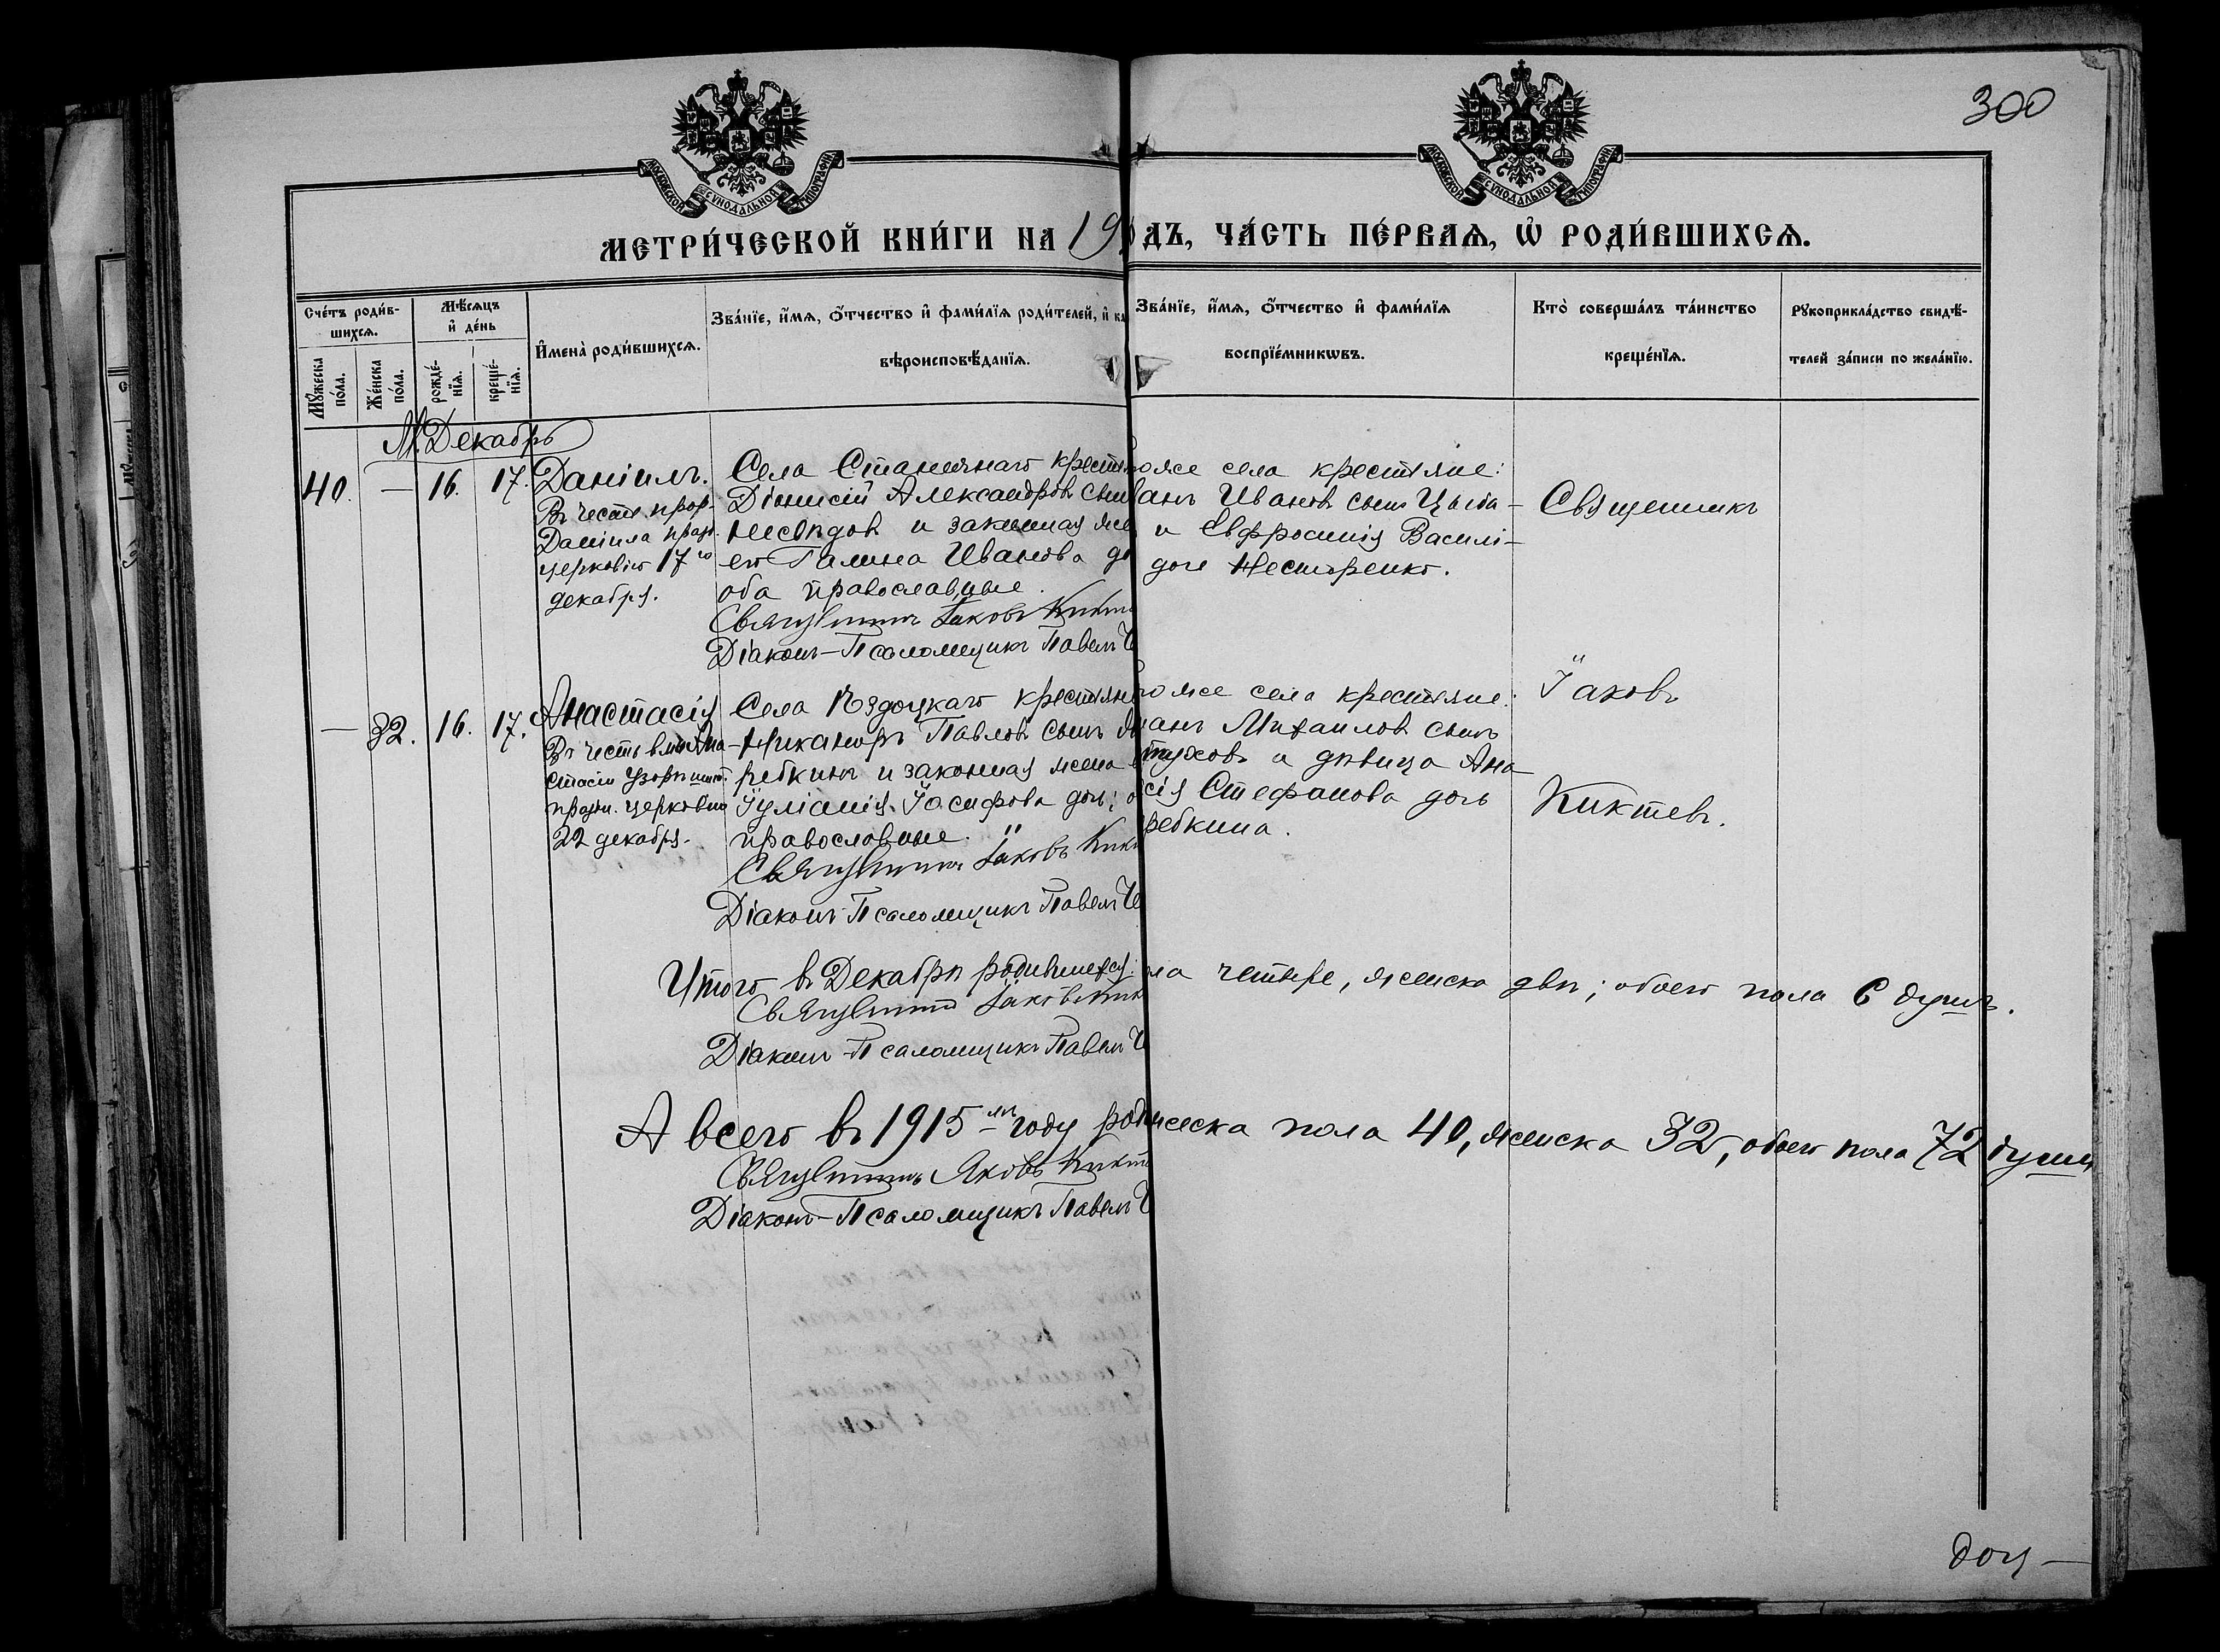 300
МОСКОВСКОЙ СУНОДАЛЬНОЙ ТИПОГРАФІИ
МОСКОВСКОЙ СУНОДАЛЬНОЙ ТИПОГРАФІИ
МЕТРИ́ЧЕСКОЙ КНИ́ГИ НА 19
ДЪ, ЧА́СТЬ ПЕ́РВАѦ, Ѡ҆ РОДИ́ВШИХСѦ.
Сче́тъ роди́в-
шихсѧ.
Мꙋ́жеска по́ла.
Же́нска по́ла.
Мѣ́сѧцъ
и҆ де́нь
рожде́-
нїѧ.
креще́-
нїѧ.
И҆мена̀ роди́вшихсѧ.
Зва́нїе, и҆́мѧ, ѻ҆́тчество и҆ фами́лїѧ роди́телей, и҆ ка
вѣроисповѣ́данїѧ.
Зва́нїе, и҆́мѧ, ѻ҆́тчество и҆ фами́лїѧ
воспрїе́мникѡвъ.
Кто̀ соверша́лъ та́инство
креще́нїѧ.
Рꙋкоприкла́дство свидѣ́-
телей за́писи по жела́нїю.
М. Декабрь
40. — 16. 17.
Даніилъ.
Въ честь прор.
Даніила праз.
церковію 17го
декабря.
Села Станичнаго крестья
Діонисій Александровъ сын
и законная же
его Галина Иванова до
оба православные.
Священникъ Іаковъ Кикт
Діаконъ-Псаломщикъ Павелъ Ч
оже села крестьяне:
ванъ Ивановъ сынъ Цыба-
и Евфросинія Василі-
дочь Нестеренко.
Священникъ
Іаковъ
Киктевъ.
— 32. 16. 17.
Анастасія
Въ честь вмч. Ана-
стасіи Узорѣшит.
празн. церковію
22 декабря.
Села Ѣздоцкаго крестьян
Никаноръ Павловъ сынъ
ребкинъ и законная жена е
Іуліанія Іосифова дочь; о
православные.
Священникъ Іаковъ Кик
Діаконъ-Псаломщикъ Павелъ Че
го же села крестьяне:
ванъ Михаиловъ сынъ
туховъ и дѣвица Ана
сія Стефанова дочь
ребкина.
Итого въ Декабрѣ родившихся:
ла четыре, женска двѣ; обоего пола 6 душъ.
Священникъ Іаковъ Кик
Діаконъ-Псаломщикъ Павелъ Ч
А всего въ 1915-мъ году роди
жеска пола 40, женска 32, обоего пола 72 души
Священникъ Яковъ Кикт
Діаконъ-Псаломщикъ Павелъ Ч